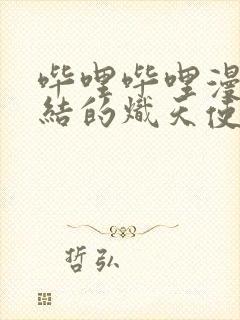 哔哩哔哩漫
结的炽天使
哲弘